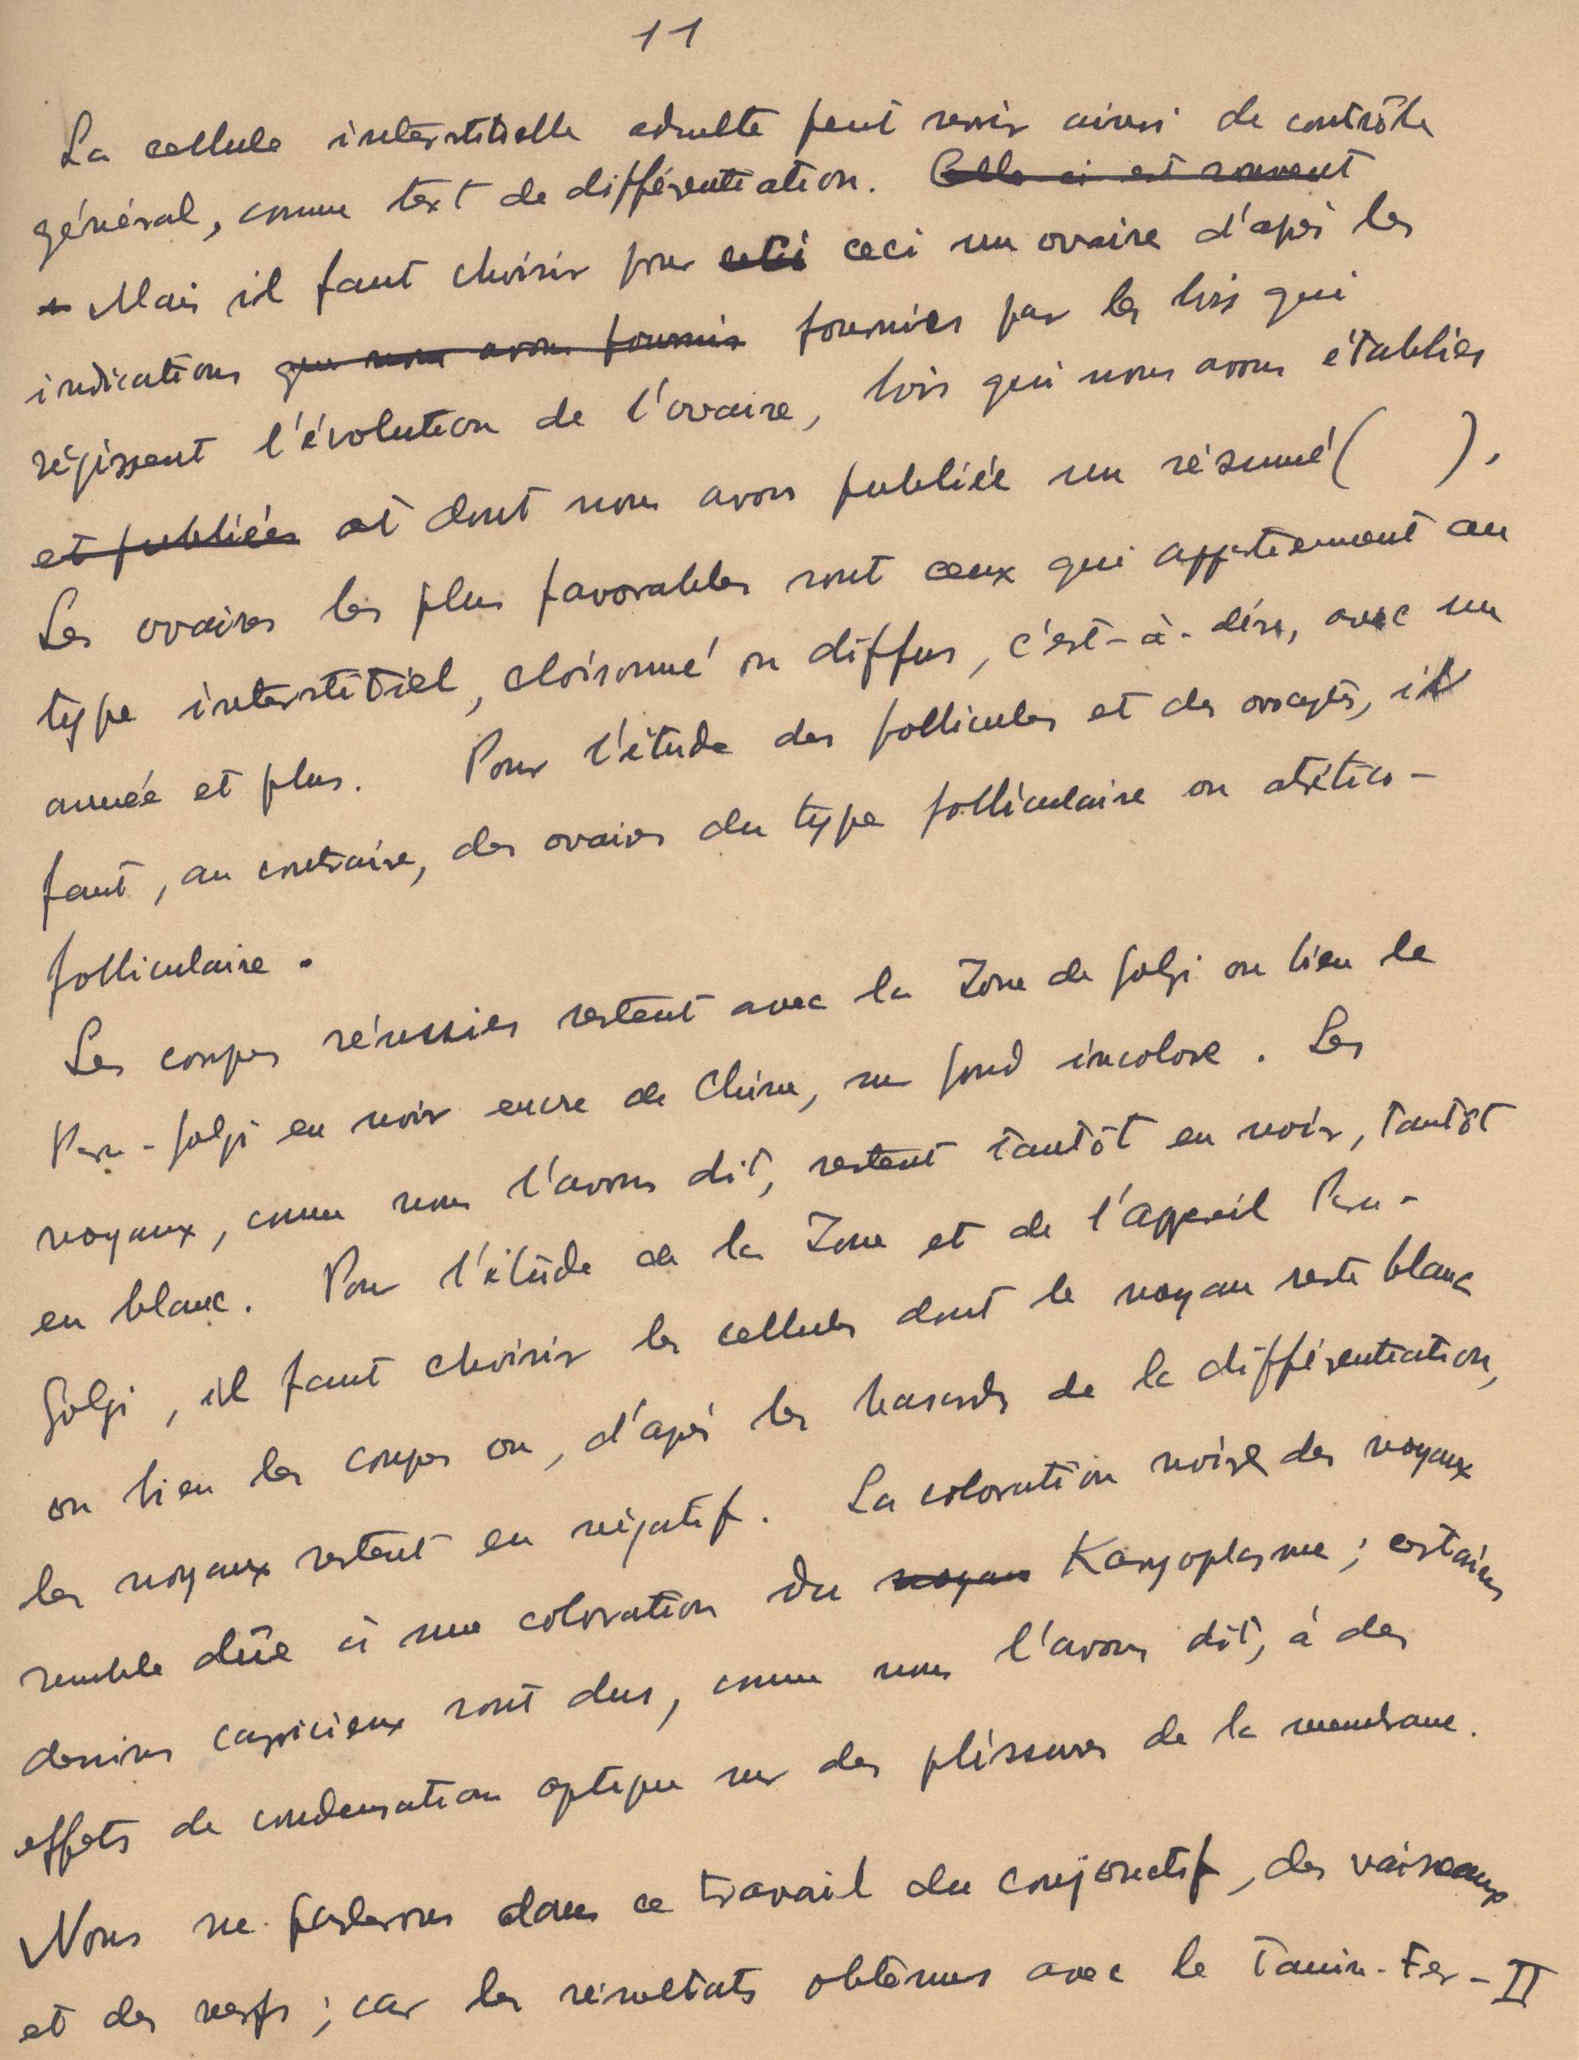 11
La cellule interstitielle adulte peut servir ainsi de contrôle
général, comme text de différentiation. Celle ci est souvent
Mais il faut choisir pour ceci un ovaire d'après les
indications que nous avons fournis fournies par les lois qui
régissent l'évolution de l'ovaire, lois qui nous avons établies
et publiées et dont nous avons publiée un résumé ( ).
Les ovaires les plus favorables sont ceux qui appartiennent au
type interstitiel, cloisonné ou diffus, c'est-à-dire, avec un
année et plus. Pour l'étude des follicules et des ovocytes, il
faut, au contraire, des ovaires du type folliculaire ou atrético-
folliculaire.
Les coupes réussies restent avec la Zone de Golgi ou bien le
Para-Golgi en noir encre de Chine, sur fond incolore. Les
noyaux, comme nous l'avons dit, restent tantôt en noir, tantôt
en blanc. Pour l'étude de la Zone et de l'appareil Para-
Golgi, il faut choisir les cellules dont le noyau reste blanc
ou bien les coupes ou, d'après les hasards de la différentiation,
les noyaux restent en négatif. La coloration noire des noyaux
semble dûe à une coloration du noyau Karyoplasme; certains
dessins capricieux sont dus, comme nous l'avons dit, à des
effets de condensation optique sur des plissures de la membrane.
Nous ne parlerons dans ce travail du conjonctif, des vaisseaux
et des nerfs; car les résultats obtenus avec le Tanin-Fer-II